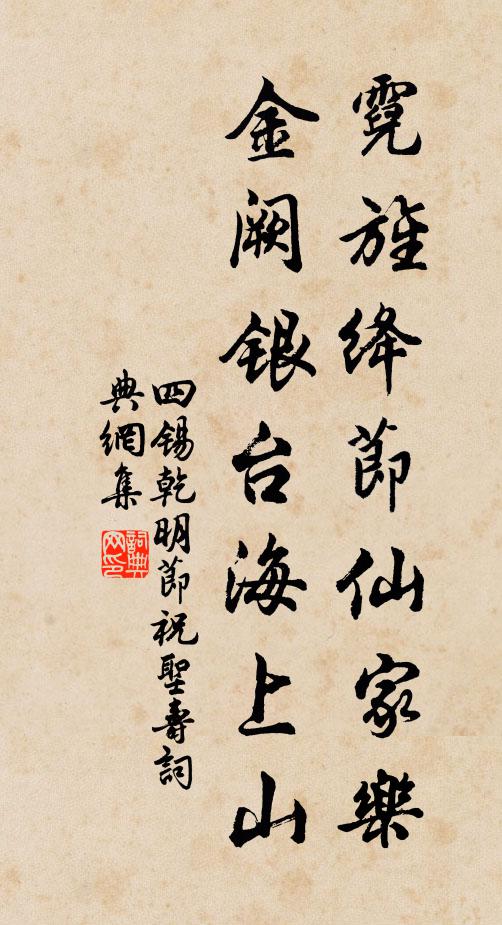 霓旌絳節仙家樂
金闕銀台海上山
四錫乾明節祝聖壽詞
典網集
詞典
网印